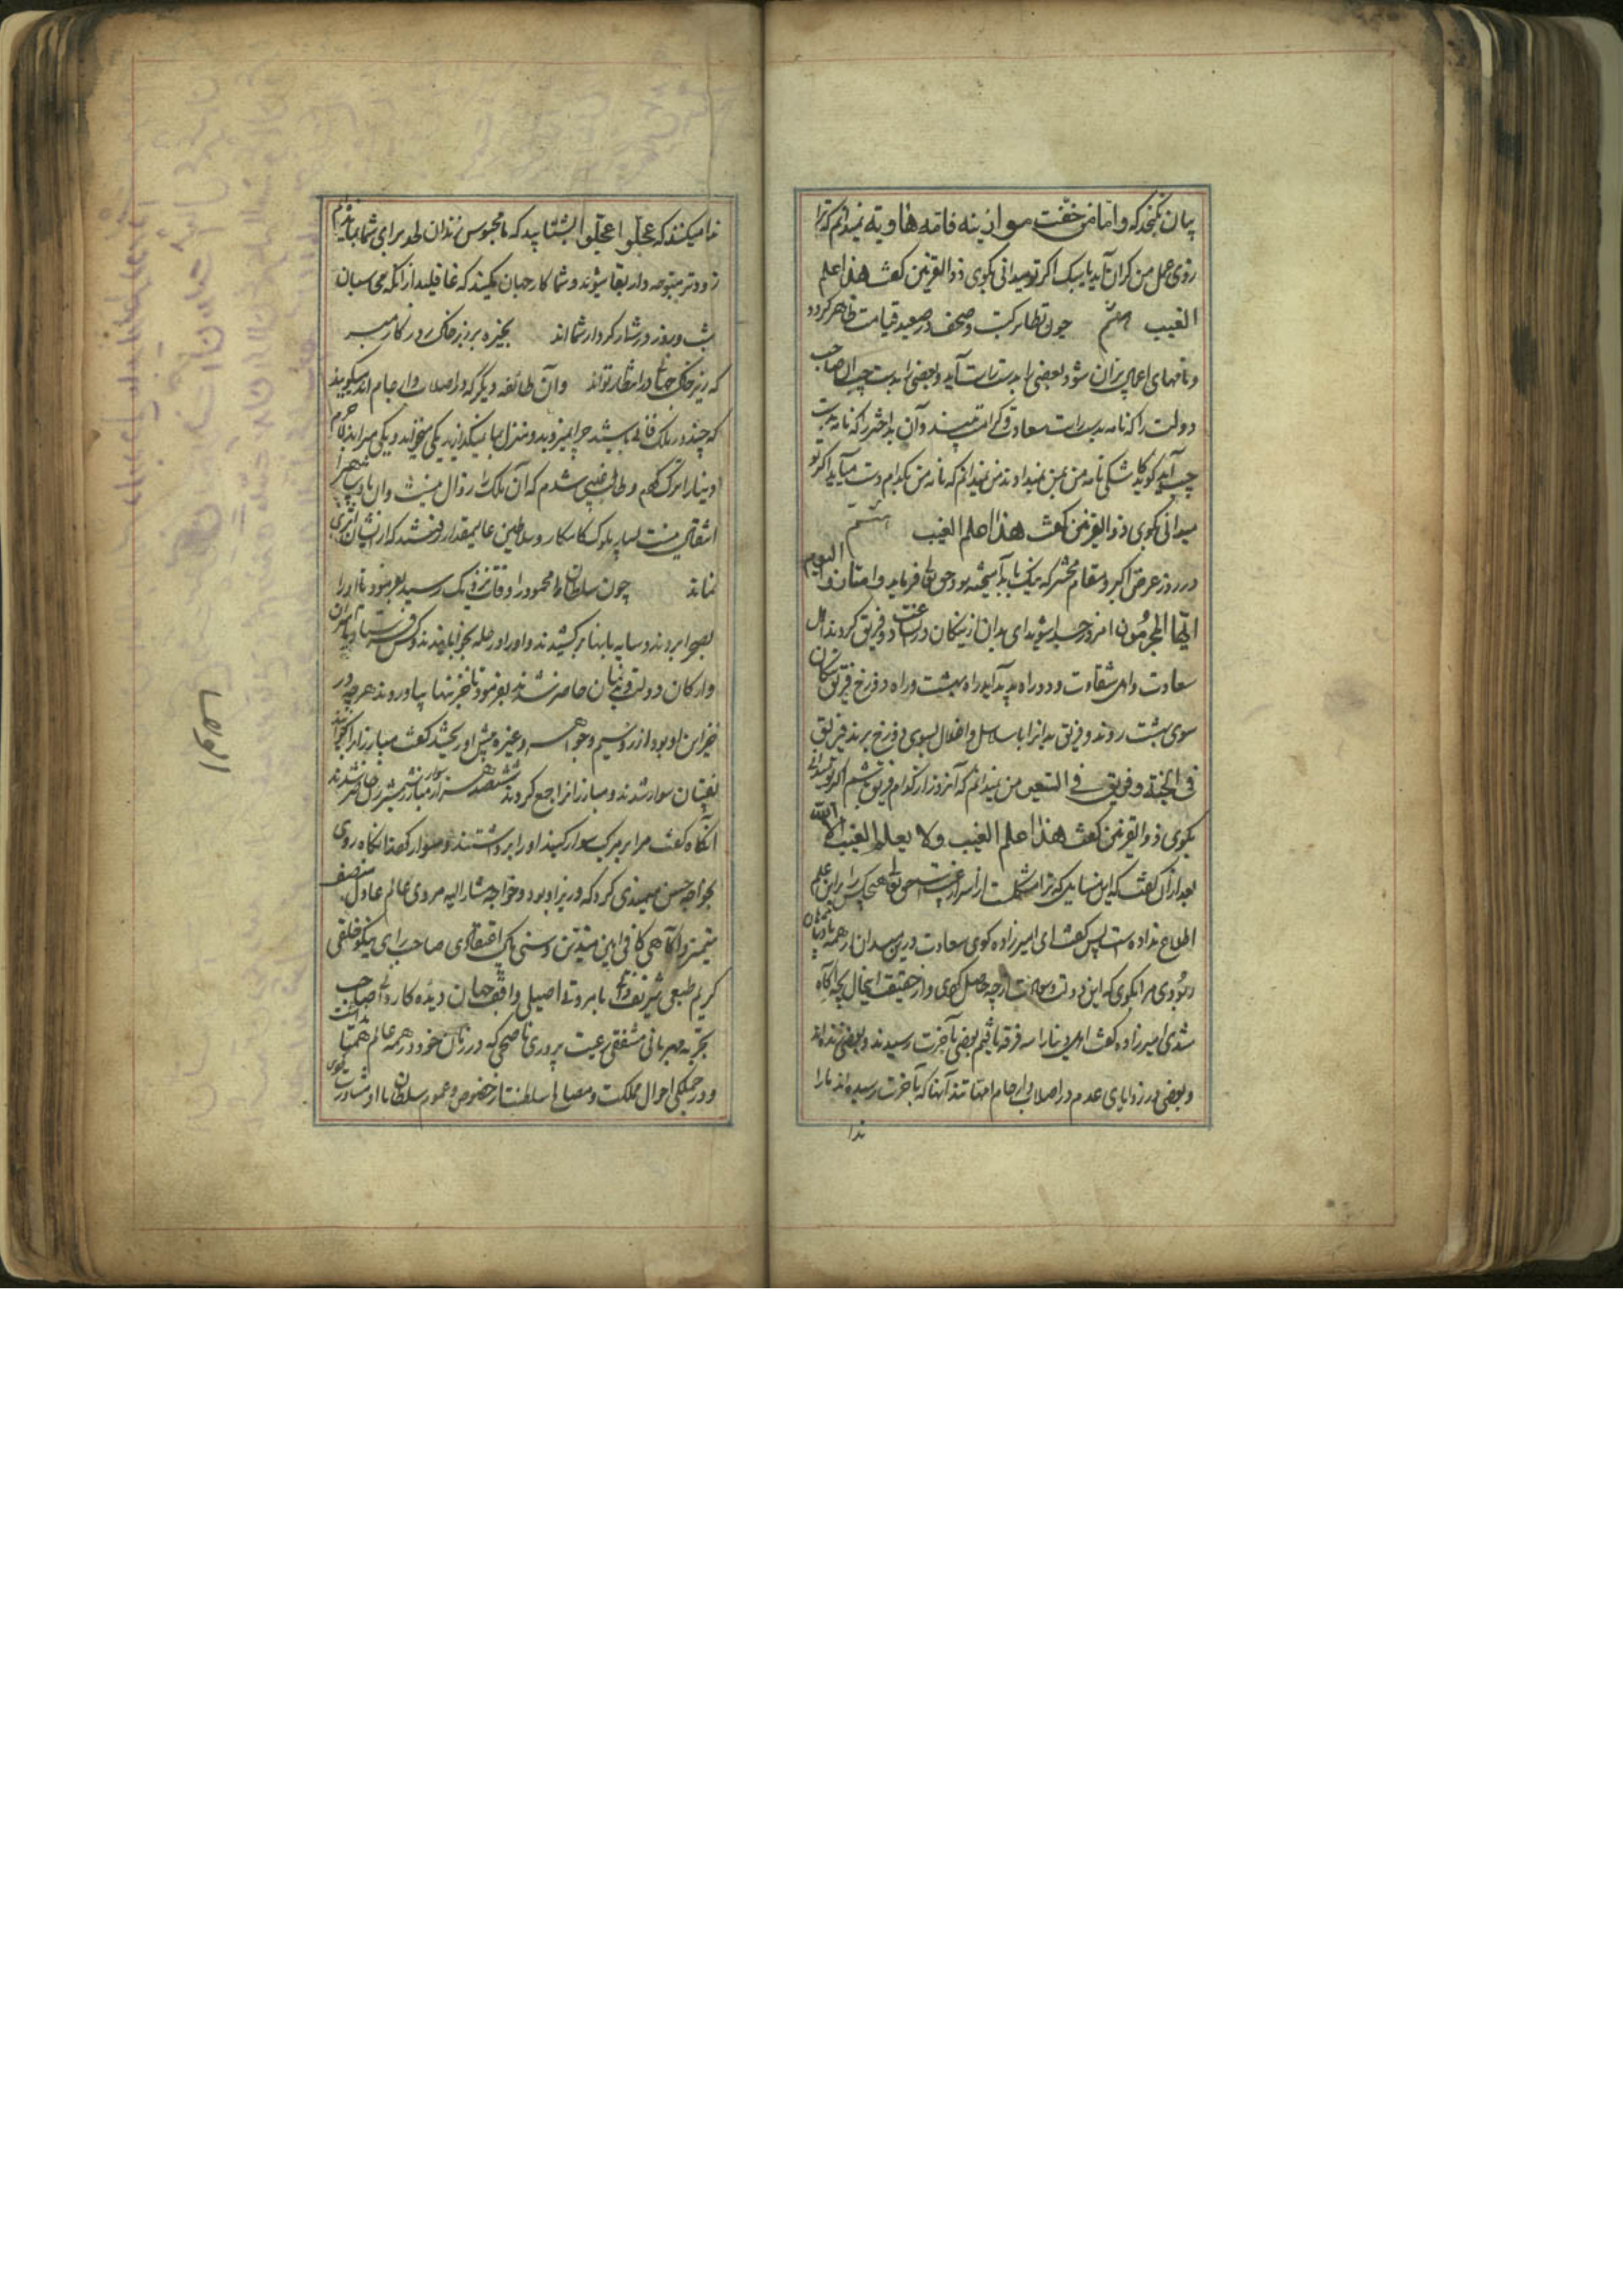 پیان بکنجد که واما من خفّت موازینه فامّه هاویة نمیدانم که ترا
زوی عمل من کران آید یا سبک اکر تو میدانی بکوی ذوالقرنین کفت هذا علم
الغیب هفتم چون تطایر کتب و صحف در صعید قیامت ظاهر کردد
و نامهای اعمال پران شود بعضی را بدست راست آید و بعضی را بدست چپ آن صاحب
دولت را که نامه بدست راست سعادت و کرامت بیند و آن بد اختر را که نامه بدست
چپ آید کوید کاشکی نامه من بمن نمیدادند من نمیدانم که نامه من بکدام دست میآید اکر تو
میدانی بکوی ذوالقرنین کفت هذا علم الغیب هشتم
در روز عرض اکبر و مقام محشر که نیک با بد آمیخته بود حق تعالی فرماید وامتازوا الیوم
ایّها المجرمون امروز جدا شوید ای بدان از نیکان در ساعت دو فریق کردند اهل
سعادت و اهل شقاوت و دو راه پدید آید راه بهشت و راه دوزخ فریق نیکان
سوی بهشت روند و فریق بدانرا با سلاسل و اغلال بسوی دوزخ برند فریق
فی الجنة و فریق فی السّعیر من نمیدانم که آنروز از کدام فریق باشم اکر تو میدانی
بکوی ذوالقرنین کفت هذا علم الغیب ولا یعلم الغیب الا الله
بعد از آن کفت که این مسایل که ترا مشکلست از اسرار غیب است حق تعالی هیچکس را بر این علم
اطلاع نداده است پس کفت ای امیرزاده کوی سعادت درین میدان از همه پادشاهان
ربودی مرا بکوی که این دولت و سعادت از چه حاصل کردی و از حقیقت اینحال بچه آکاه
شدی امیرزاده کفت اهل دنیا را سه فرقه یافتم بعضی بآخرت رسیدند و بعضی زنده اند
و بعضی در زوایای عدم در اصلاب و ارحام امهاتند آنها که بآخرت رسیده اند ما را
ندا
ندا میکنند که عجّلوا عجّلوا بشتابید که ما محبوس زندان لحد برای شما مانده ایم
زودتر متوجه دار بقا شوید و شما کار جهان میکنید که غافلید از آنکه محاسبان
شب و روز در شمار کردار شما اند بجیزه بر زیر خاک در کار مبر
که زیر خاک جمعی در انتظار تواند و آن طائفه دیکر که در اصلاب و ارحام اند میکویند
که چند در ملک فانی باشید چرا نمیروید و منزل بما نمیکذارید یکی میخواند و یکی میراند لاجرم
دنیا را ترک کردم و طالب عقبی شدم که آن ملک را زوال نیست و آن پادشاهی را
انتقال نیست بسیار ملوک کامکار و سلاطین عالیمقدار رفتند که از ایشان اثری
نماند چون سلطان محمود را وفات نزدیک رسید بفرمود تا او را
بصحرا بردند و سایه بانها برکشیدند و او را در خیمه بخوابانیدند و کس فرستاد تا امیران
و ارکان دولت و ندیمان حاضر شدند بفرمود تا خزینها بیاوردند هر چه در
خزاین او بود از زر و سیم و جواهر و غیره پیش او ریختند کفت مبارزانرا بخوانید
نقیبان سوار شدند و مبارزانرا جمع کردند ششصد هزار سوار مبارز شمشیر زن حاضر شدند
آنکاه کفت مرا بر مرکب سوار کنید او را برداشتند و سوار کردند آنکاه روی
بخواجه حسن میمندی کرد که وزیر او بود و خواجه مشارالیه مردی عالم عادل منصف
متمیز و آکاهی کافی امین متدیّن و سنی پاک اعتقادی صاحب رای نیکو خلقی
کریم طبعی شریف ذاتی با مروت اصیلی واقف جهان دیده کاردانی صاحب
تجربه مهربانی مشفقی رعیت پروری ناصحی که در زمان خود در همه عالم همتا نداشت
و در جملکی احوال مملکت و مصالح سلطنت از خصوص و عموم سلطان با او مشاورت نمودی